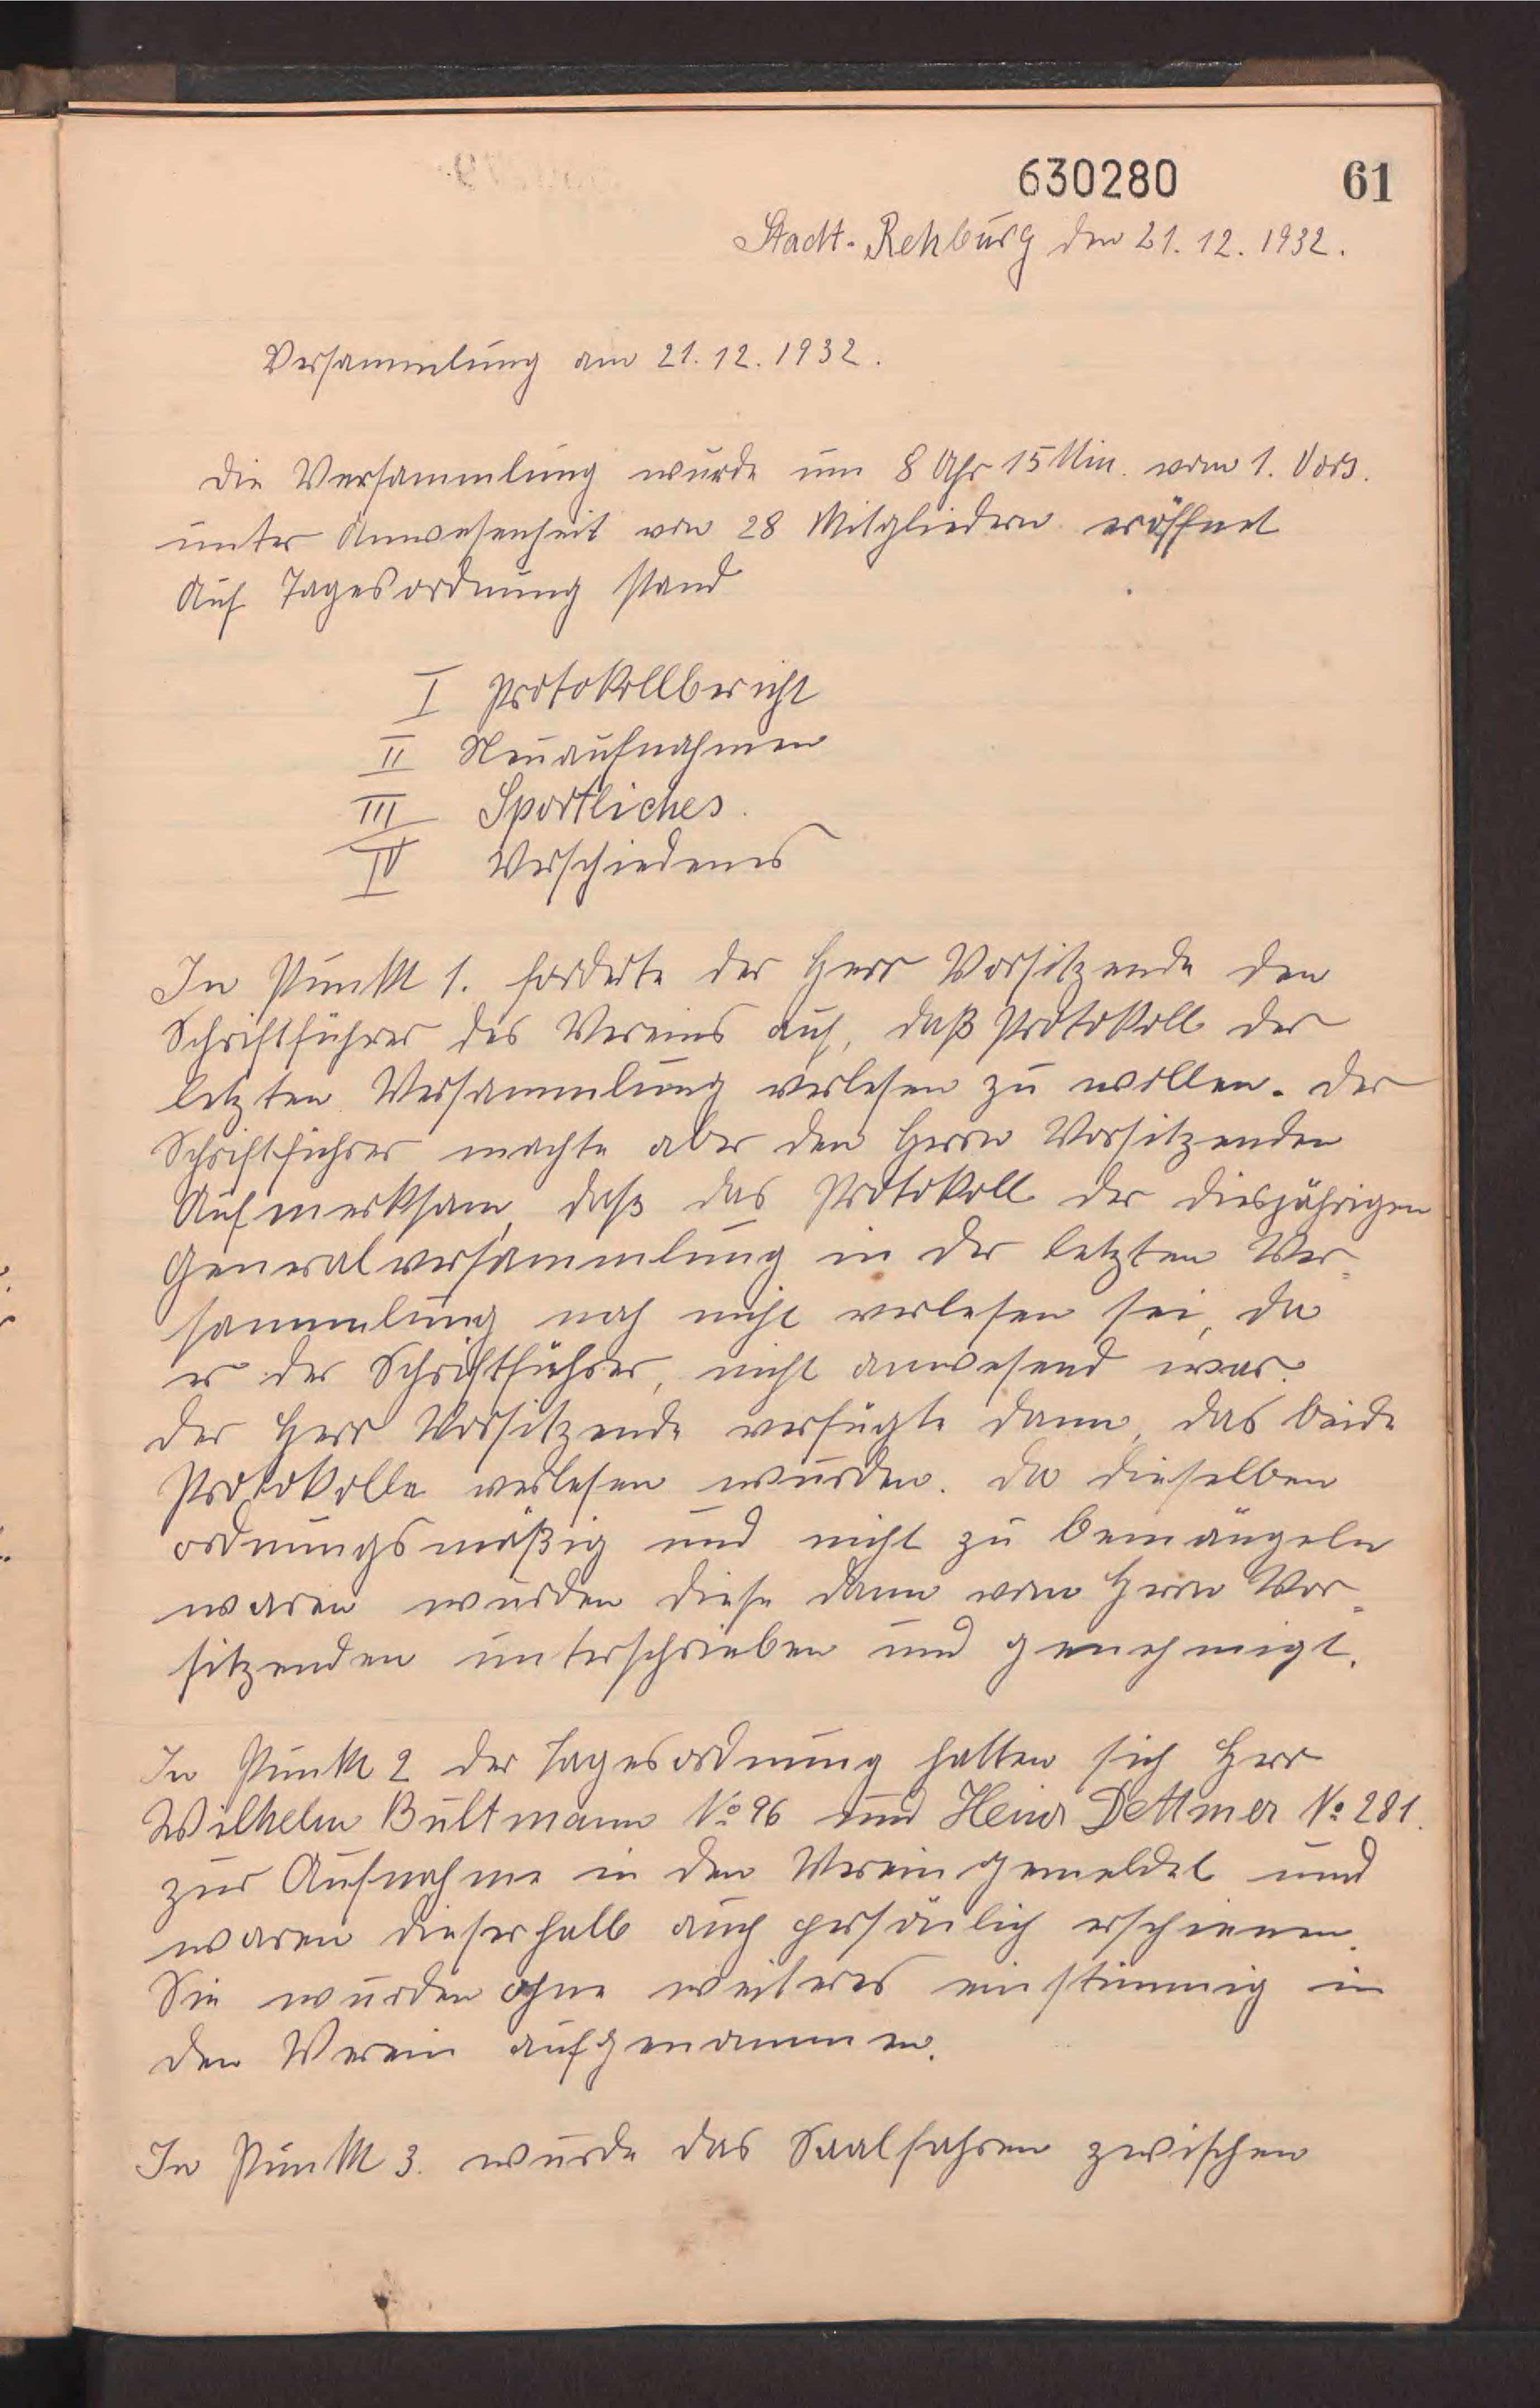 630280 61
Stadt-Rehburg den 21.12.1932.
Versammlung am 21.12.1932.
Die Versammlung wurde um 8 Uhr 15 Min. vom 1. Vors.
unter Anwesenheit von 28 Mitgliedern eröffnet
Auf Tagesordnung stand
I Protokollbericht
II Neuaufnahmen
III Sportliches.
IV Verschiedenes
In Punkt 1. forderte der Herr Vorsitzende den
Schriftführer des Vereins auf, daß Protokoll der
letzten Versammlung verlesen zu wollen. Der
Schriftführer machte aber den Herrn Vorsitzenden
Aufmerksam, daß das Protokoll der diesjährigen
Generalversammlung in der letzten Ver-
sammlung noch nicht verlesen sei, da
er der Schriftführer, nicht anwesend war.
Der Herr Vorsitzende verfügte dann, das beide
Protokolle verlesen wurden. Da dieselben
ordnungsmäßig und nicht zu bemängeln
waren wurden diese dann vom Herrn Vor-
sitzenden unterschrieben und genehmigt.
In Punkt 2 der Tagesordnung hatten sich Herr
Wilhelm Bultmann No 96 und Heinr Dettmer No 281.
zur Aufnahme in den Verein gemeldet und
waren dieserhalb auch persönlich erschienen.
Sie wurden ohne weiteres einstimmig in
den Verein aufgenommen.
In Punkt 3. wurde das Saalfahren zwischen